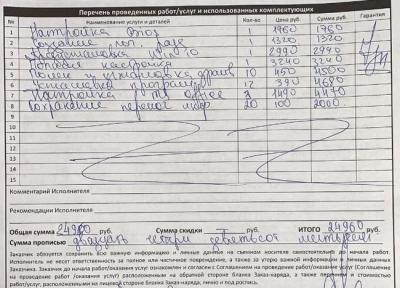 Перечень проведенных работ/услуг и использованных комплектующих
№ Наименование услуги и деталей Кол-во Цена руб. Сумма руб. Гарантия
1 Настройка 1 1760 1760
2 1 1320 1320
3 1 2990 2990
4 настройка 1 3240 3240
5 Поиск и установка драйв 10 450 4500
6 Установка программ 12 390 4680
7 Настройка MS office 3 1490 4470
8 Сохранение перенос инфор 20 100 2000
9
10
11
12
13
14
15
Комментарий Исполнителя
Рекомендации Исполнителя
Общая сумма 24960 руб. Сумма скидки руб. ИТОГО 24960 руб.
Сумма прописью двадцать четыре девятьсот шестьдесят
Заказчик обязуется сохранить всю важную информацию и личные данные на съемном носителе самостоятельно до начала работ.
Исполнитель не несет ответственность за полное или частичное повреждение, а также за утерю важной информации и личных данных
Заказчика. Заказчик до начала работ/оказания услуг ознакомлен и согласен с Соглашением на проведение работ/оказание услуг (Соглашение
на проведение работ/оказания услуг) расположенным на обратной стороне бланка Заказ-наряда, а также перечнем и стоимостью
работ/услуг, расположенными на лицевой стороне бланка Заказ-наряда, лично и под роспись.